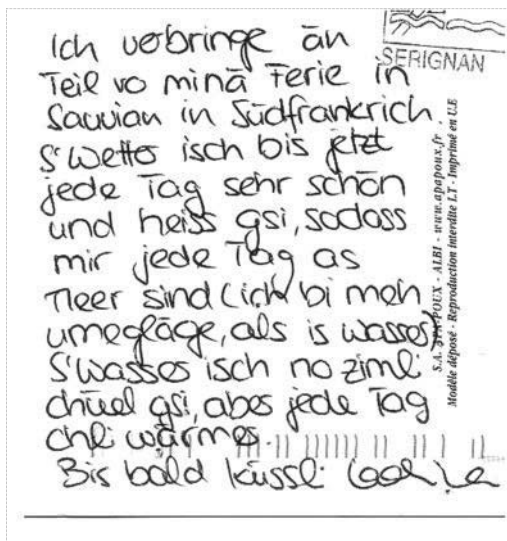 Ich verbringe än
SERIGNAN
Teil vo minä Ferie in
Sauvian in Südfrankrich.
S'Wetter isch bis jetzt
jede Tag sehr schön
und heiss gsi, sodass
mir jede Tag as
Meer sind (ich bi meh
umegläge, als is Wasser)
S'Wasser isch no ziml.
chüel gsi, aber jede Tag
chli wärmer.
Bis bald küssli
S.A. APA-POUX - ALBI - www.apapoux.fr
Modèle déposé - Reproduction interdite I.T - Imprimé en U.E